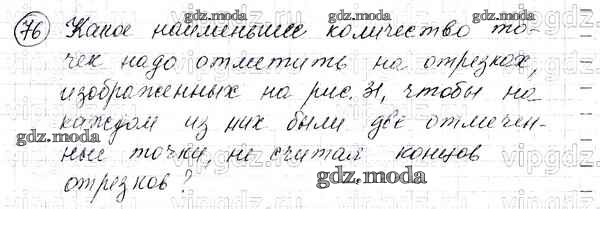 gdz.moda gdz.moda
76 Какое наименьшее количество то-
чек надо отметить на отрезках,
изображенных на рис. 31, чтобы на
каждом из них были две отмечен-
gdz.moda
ные точки, не считая концов
gdz.moda
отрезков?